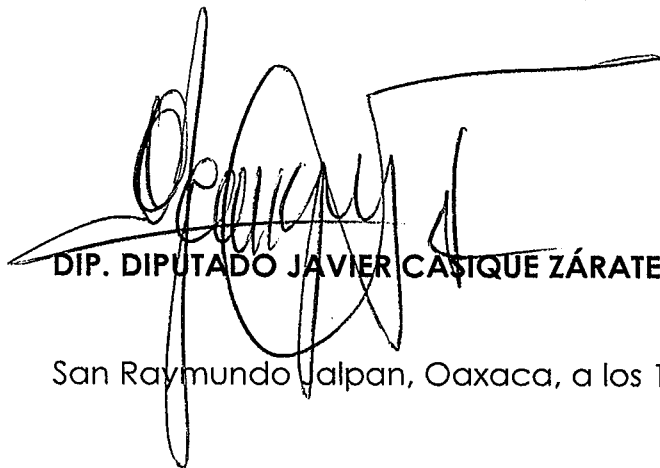 DIP. DIPUTADO JAVIER CASIQUE ZÁRATE
San Raymundo Jalpan, Oaxaca, a los 1